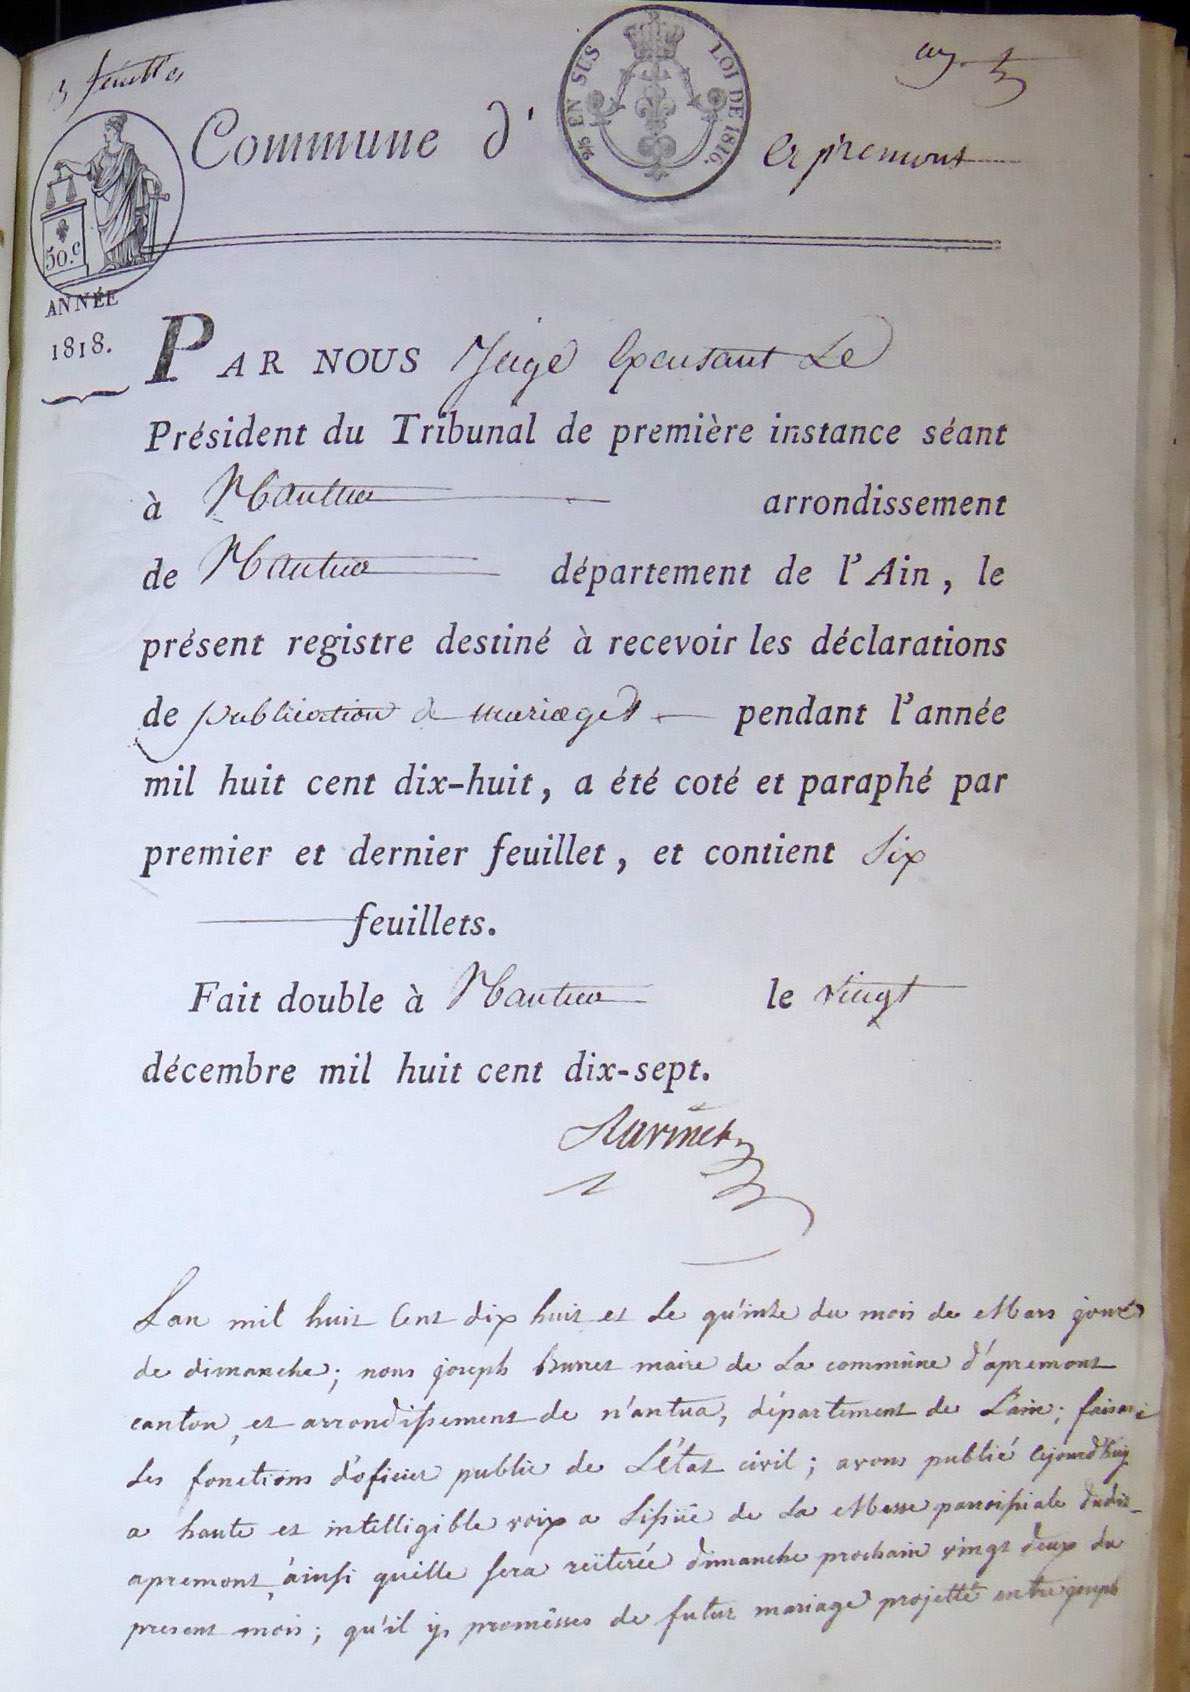 feuillets
9/5 EN SUS LOI DE 1816.
Commune d' apremont
50.c
ANNÉE
1818.
PAR NOUS Juge Exerçant Le
Président du Tribunal de première instance séant
à Nantua arrondissement
de Nantua département de l'Ain, le
présent registre destiné à recevoir les déclarations
de publication de mariages pendant l'année
mil huit cent dix-huit, a été coté et paraphé par
premier et dernier feuillet, et contient Six
feuillets.
Fait double à Nantua le vingt
décembre mil huit cent dix-sept.
Lan mil huit Cent dix huit et le quinze du mois de Mars jour
de dimanche; nous joseph Burnet maire de La commune d'apremont
canton, et arrondissement de n'antua, département de L'ain; faisant
Les fonctions d'oficier public de L'état civil; avons publié cejourd'huy
a haute et intelligible voix a Lissüe de La Messe paroissiale dudit
apremont, ainsi quélle sera reïterée dimanche prochain vingt deux du
present mois; qu'il y promésses de futur mariage projetté entre joseph